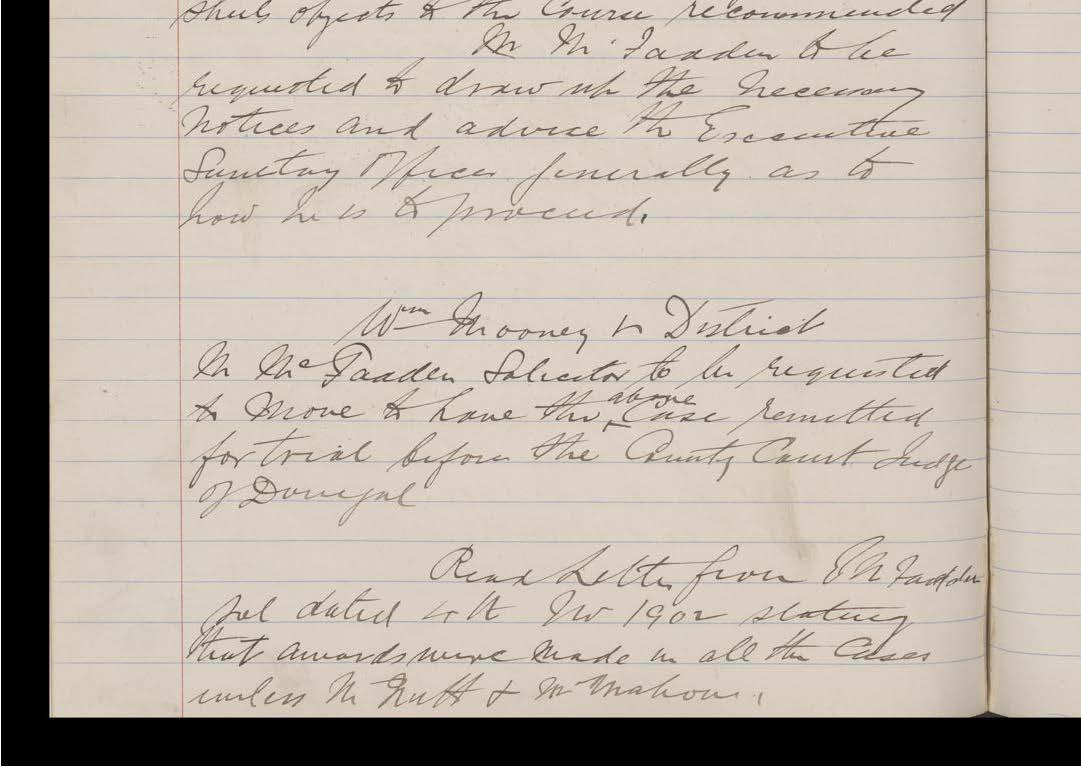 objects to the Course recommended
Mr McFadden to be
requested to draw up the necessary
notices and advise the Executive
Sanitary Officer generally as to
how he is to proceed.
Wm Mooney v District
Mr McFadden Solicitor to be requested
to move to have the above Case remitted
for trial before the County Court Judge
of Donegal
Read Letter from McFadden
Sol dated 4th Nov 1902 stating
that awards were made in all the Cases
unless Mr &